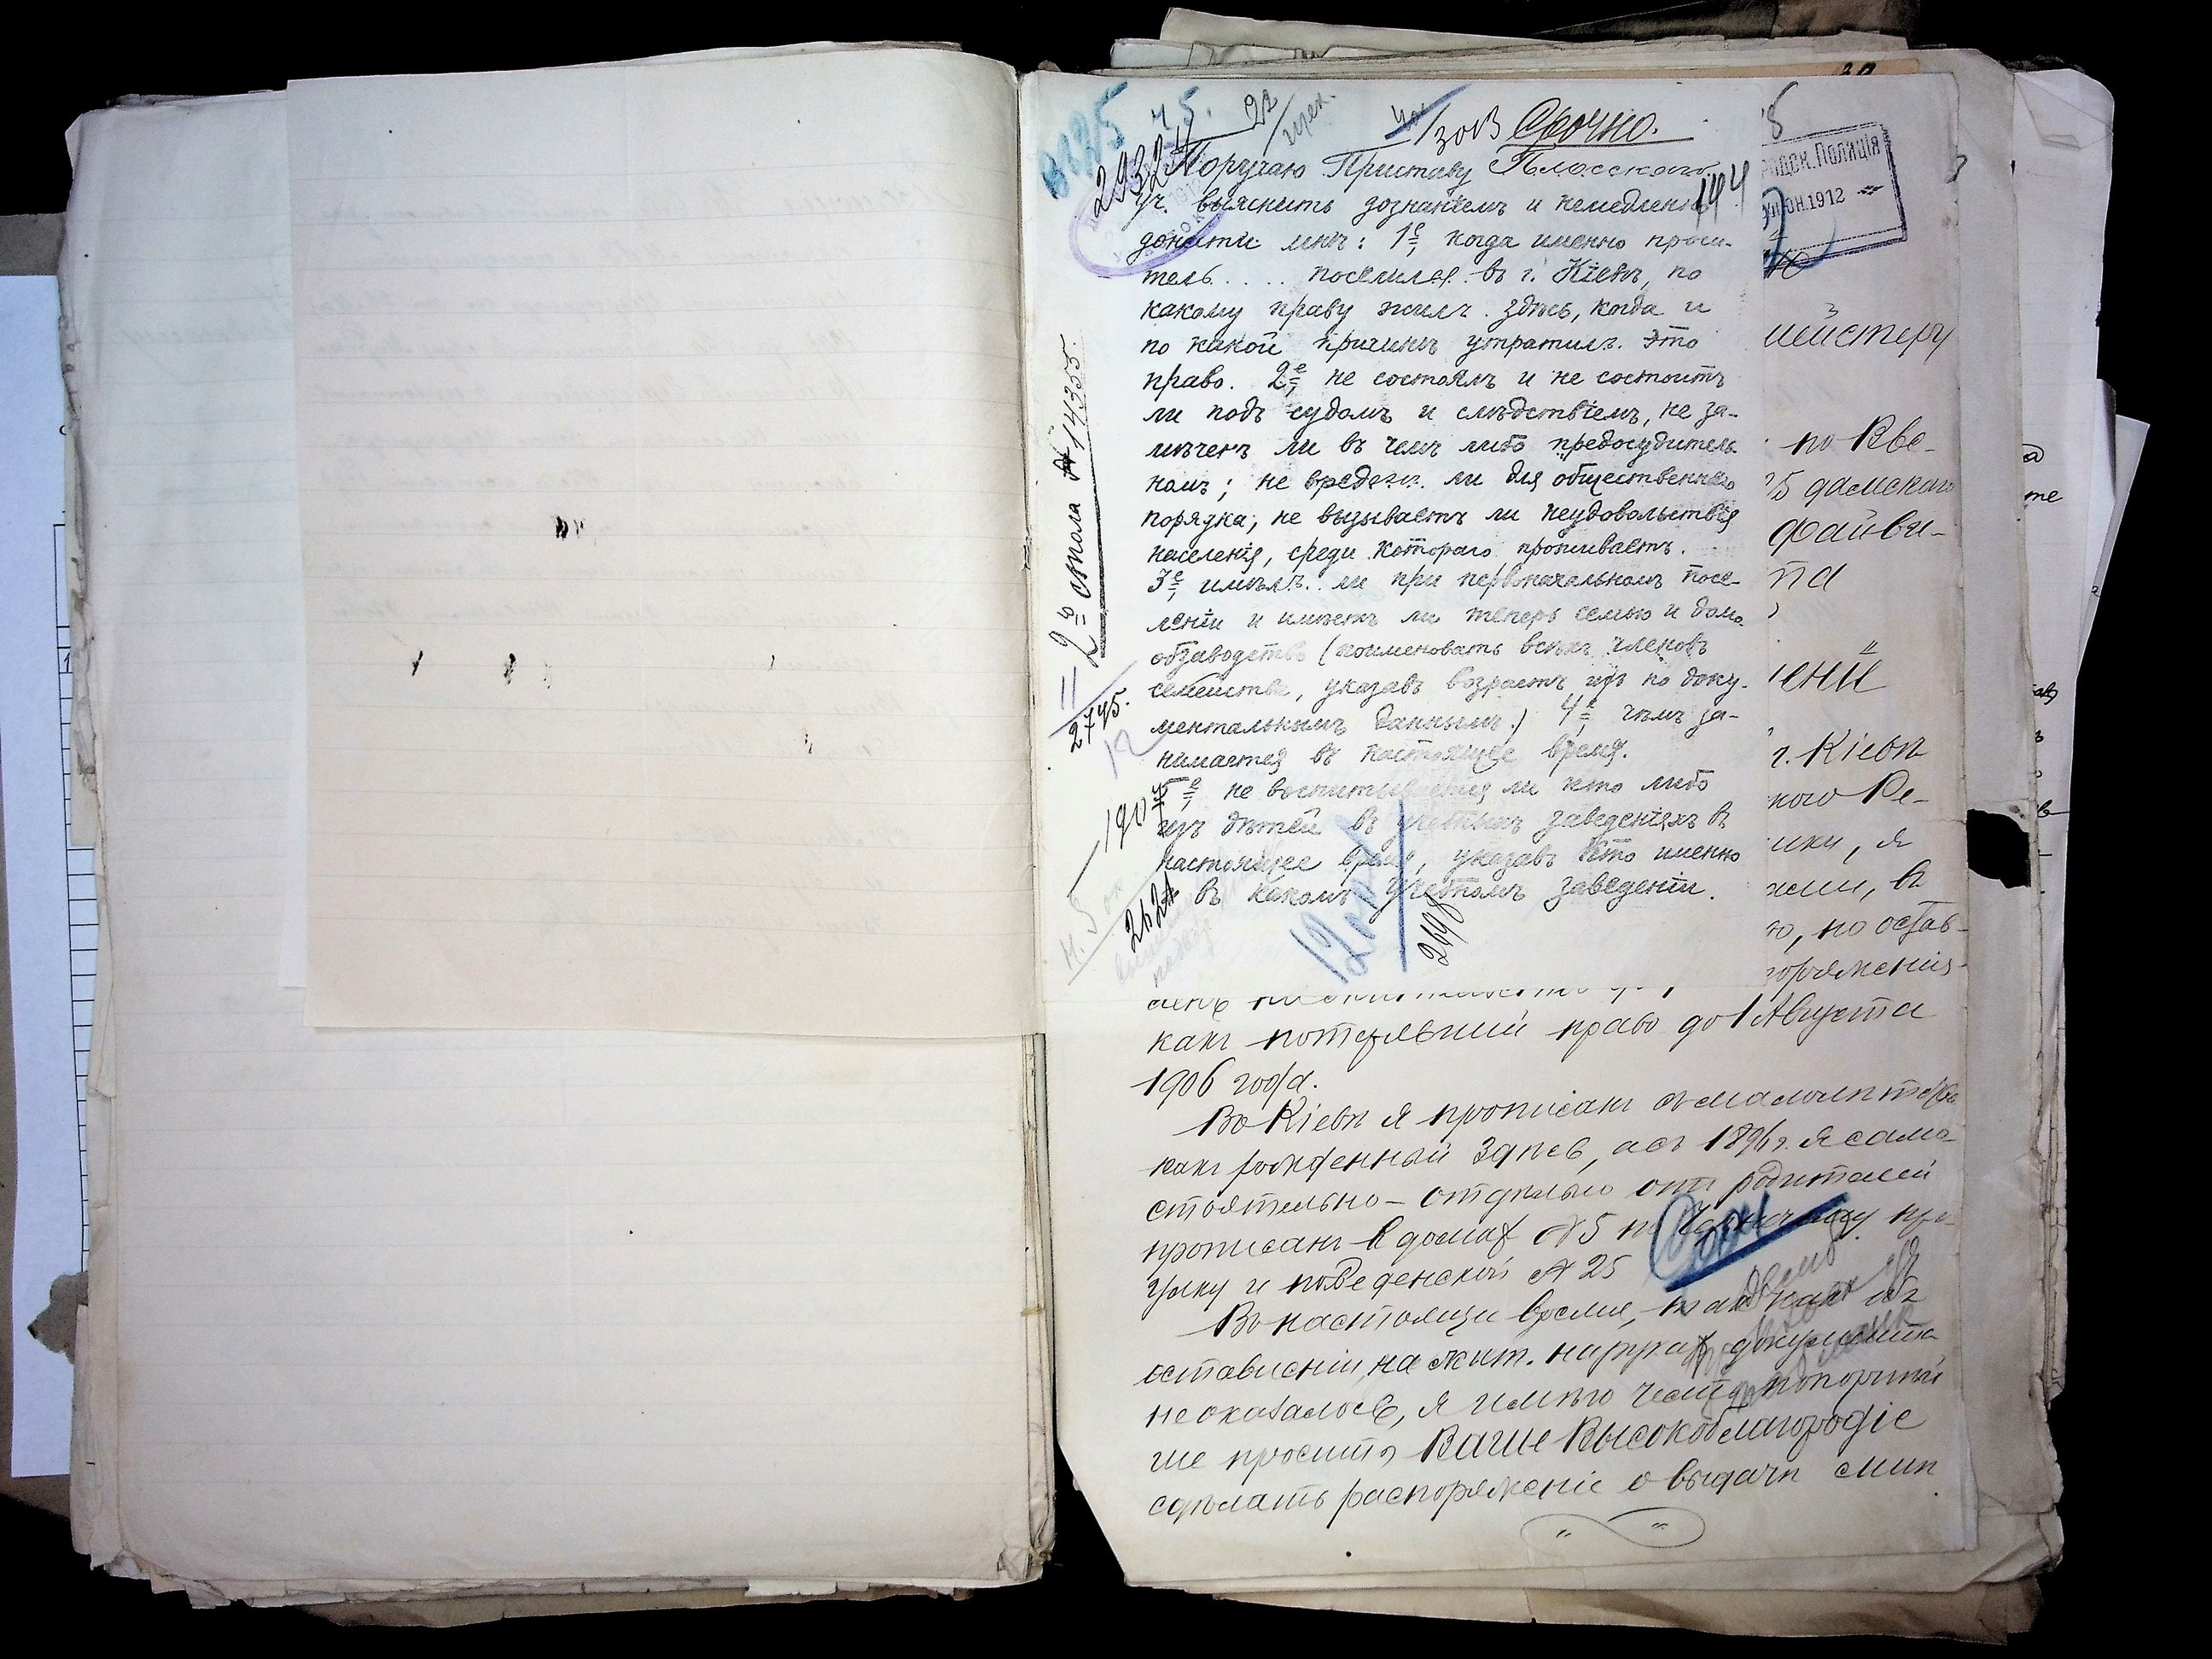 Срочно.
Поручаю Приставу Плосскаго
уч. выяснить дознаніемъ и немедленно
донести мнѣ: 1е, когда именно проси-
тель..... поселился въ г. Кіевѣ, по
какому праву жилъ здѣсь, когда и
по какой причинѣ утратилъ это
право. 2е, не состоялъ и не состоитъ
ли подъ судомъ и слѣдствіемъ, не за-
мѣченъ ли въ чемъ либо предосудитель
номъ; не вреденъ ли для общественнаго
порядка, не вызываетъ ли неудовольствія
населенія, среди котораго проживаетъ.
3е, имѣлъ.. ли при первоначальномъ посе-
леніи и имѣетъ ли теперь семью и домо-
обзаводство (поименовать всѣхъ членовъ
семейства, указавъ возрастъ ихъ по доку-
ментальнымъ даннымъ.) 4е, чѣмъ за-
нимается въ настоящее время.
5е, не воспитывается ли кто либо
изъ дѣтей въ учебныхъ заведеніяхъ въ
настоящее время, указавъ кто именно
въ какомъ учебномъ заведеніи.
2го стола № 14355.
2745.
2424
2698
29324
194
Городск. Полиція
1912
мейстеру
по Вве-
25
Файви-
г. Кіевѣ
наго Ре-
ики, я
но остав-
какъ потерявшій право до 1 Августа
1906 года.
Въ Кіевѣ я прописанъ съ малолѣтства
какъ рожденный здѣсь, а съ 1896 г. я само
стоятельно - отдѣльно отъ родителей
прописанъ въ домахъ № 5 по
улку и по Веденской № 25
Въ настоящее время, такъ какъ объ
оставленіи на жит. наряда документа
не оказалось, я имѣю честь покорнѣй
ше просить Ваше Высокоблагородіе
сдѣлать распоряженіе о выдачѣ мнѣ